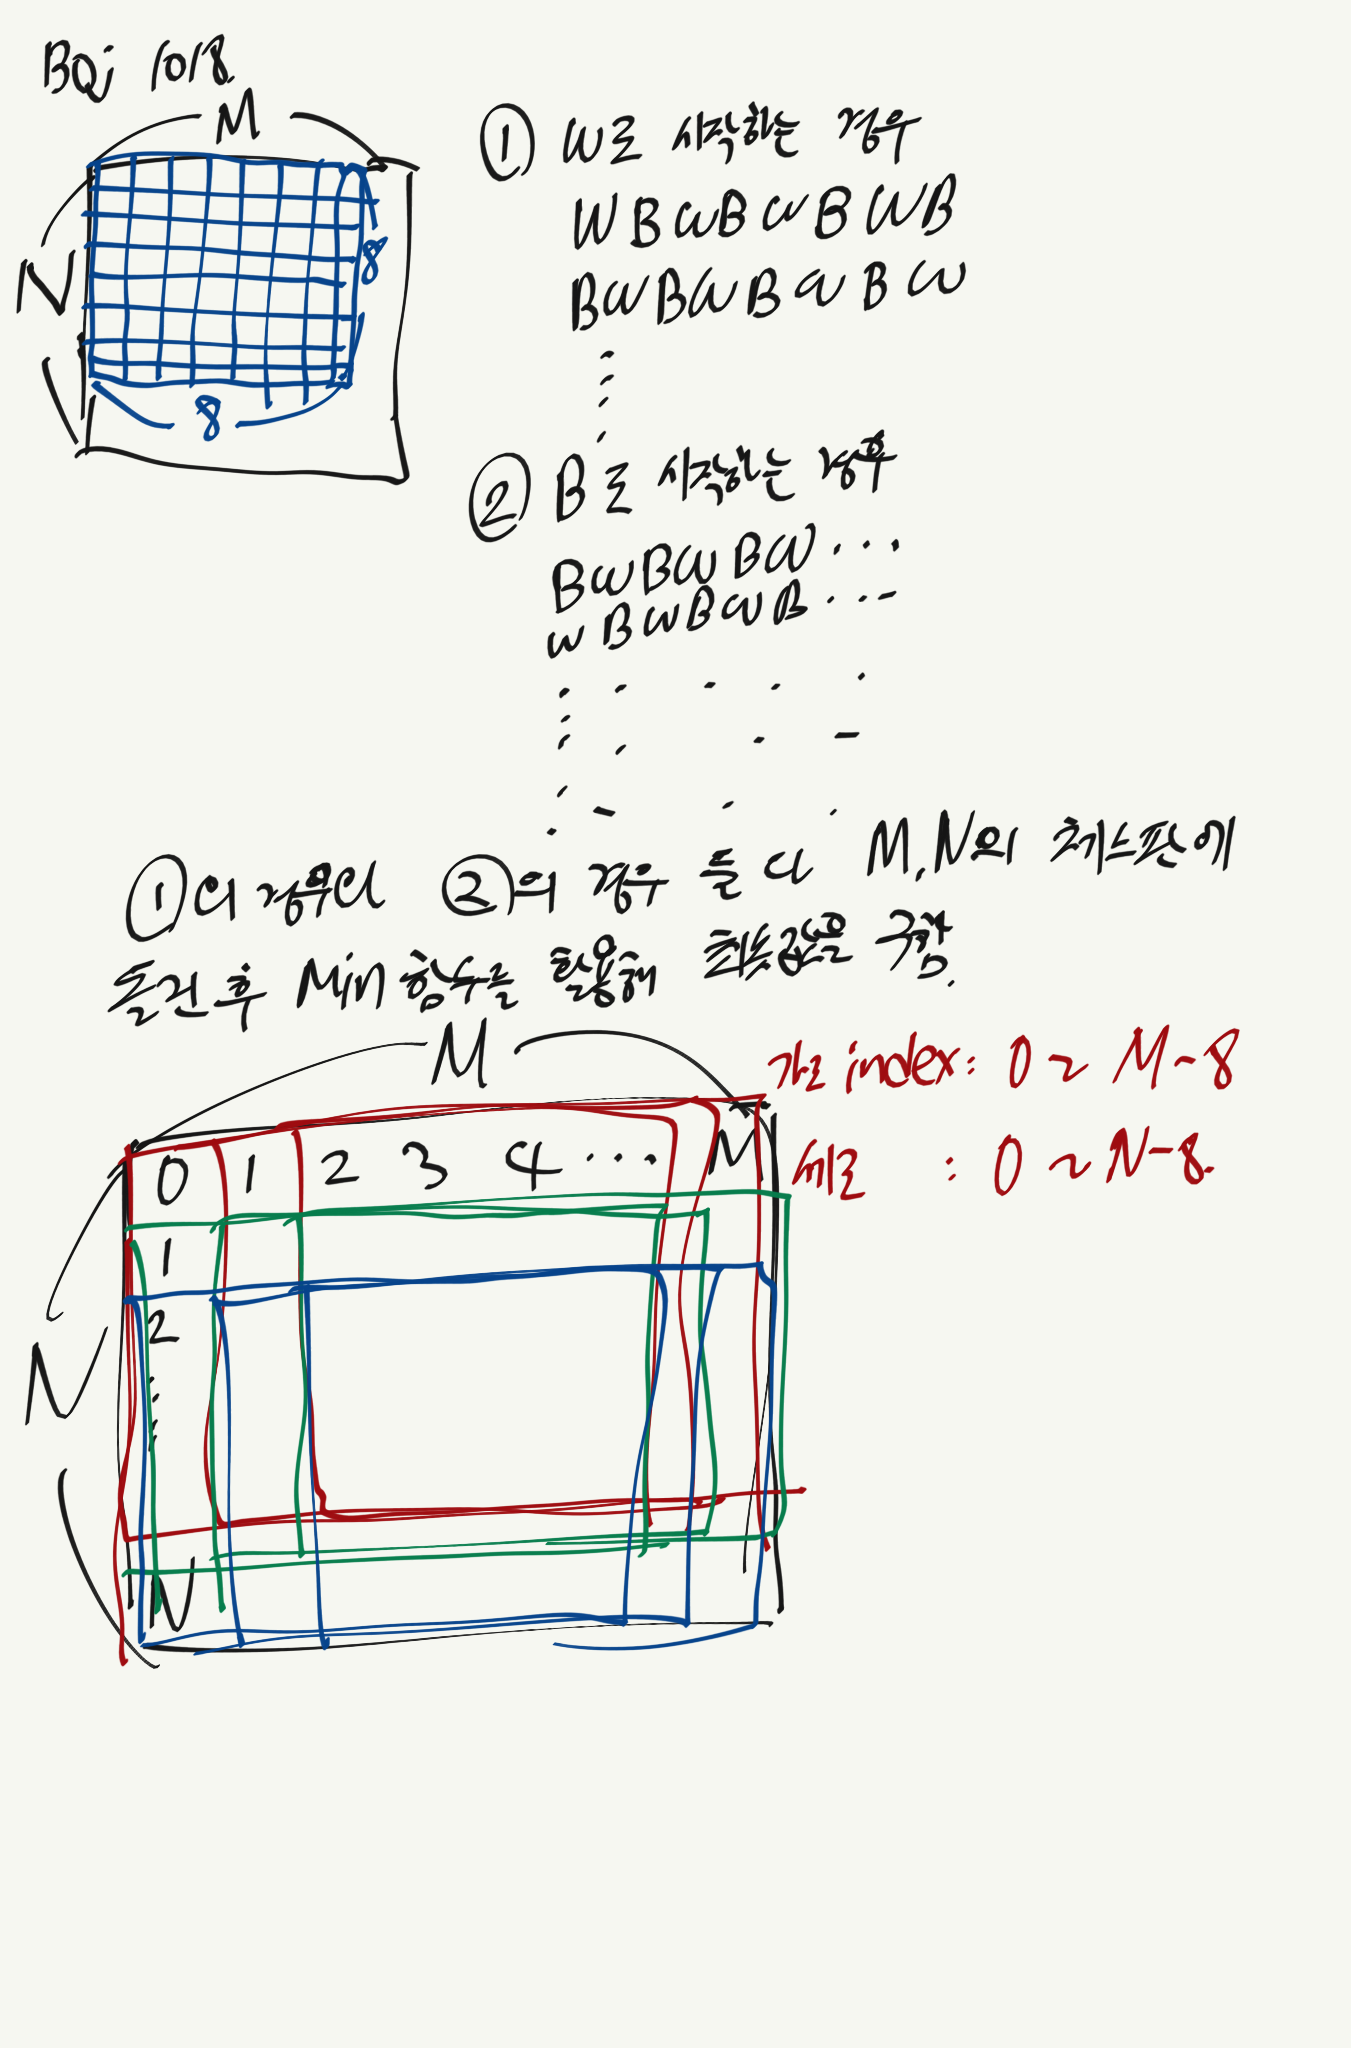 BOj 1018.
M
N
8
8
① W로 시작하는 경우
W B W B W B W B
B W B W B W B W
② B로 시작하는 경우
B W B W B W ...
W B W B W B ...
①의 경우와 ②의 경우 둘 다 M,N의 체스판에
돌린 후 Min 함수를 활용해 최솟값을 구함.
M
가로 index: 0 ~ M-8
세로 : 0 ~ N-8.
0 1 2 3 4 ... M
1
2
N
N